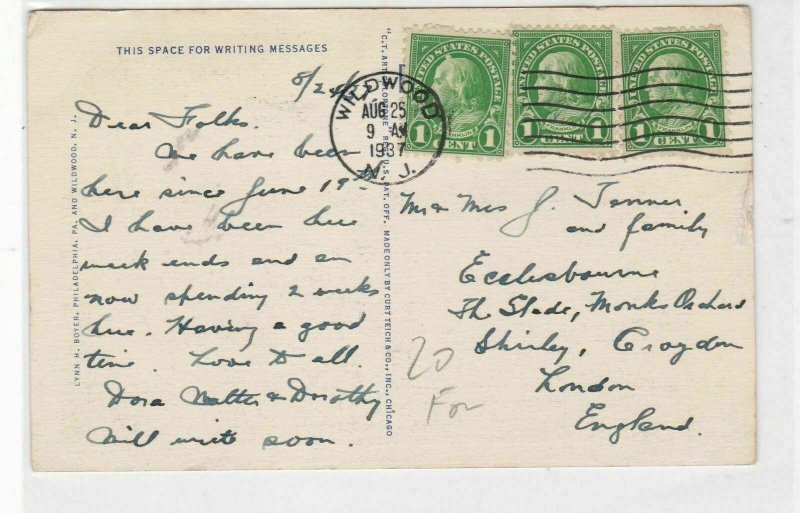 THIS SPACE FOR WRITING MESSAGES
8/24/
Dear Folks.
We have been
here since June 19th
I have been here
week ends and am
now spending 2 weeks
here. Having a good
time. Love to all.
Dora Walter & Dorothy
Will write soon.
LYNN H. BOYER, PHILADELPHIA, PA. AND WILDWOOD, N. J.
"C.T. ART-COLORTONE" REG. U.S. PAT. OFF. MADE ONLY BY CURT TEICH & CO., INC., CHICAGO
WILDWOOD
AUG 25
9 AM
1937
N. J.
UNITED STATES POSTAGE
FRANKLIN
1 CENT 1
UNITED STATES POSTAGE
FRANKLIN
1 CENT 1
UNITED STATES POSTAGE
FRANKLIN
1 CENT 1
Mr & Mrs J. Tanner
and family
Ecclesbourne
The Slade, Monks Orchard
Shirley, Croydon
London
England.
20
For